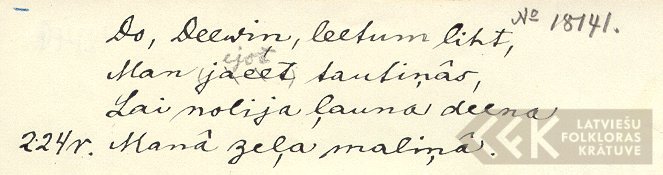 № 18141.
Do, Deewin, leetum liht,
ejot
Man jaeet, tautiņâs,
Lai nolija ļauna deena
224r. Manâ zeļa maliņâ.
LATVIEŠU
FOLKLORAS
KRĀTUVE